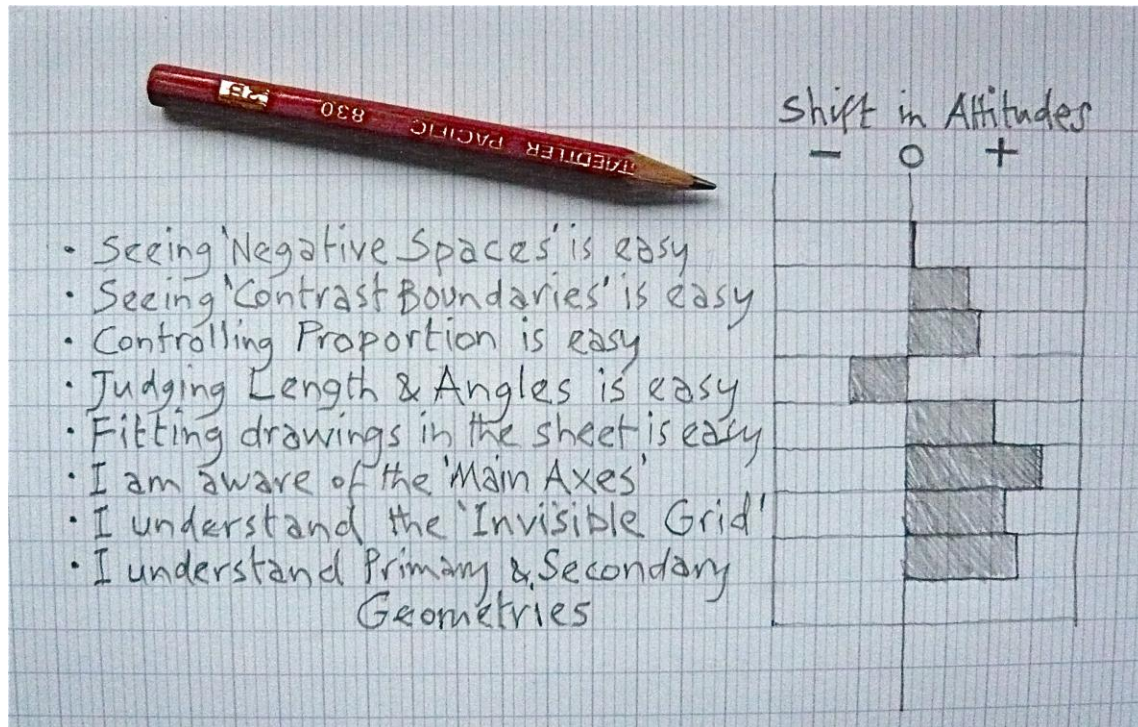 2B
830
STAEDTLER PACIFIC
Shift in Attitudes
− 0 +
• Seeing 'Negative Spaces' is easy
• Seeing 'Contrast Boundaries' is easy
• Controlling Proportion is easy
• Judging Length & Angles is easy
• Fitting drawings in the sheet is easy
• I am aware of the 'Main Axes'
• I understand the 'Invisible Grid'
• I understand Primary & Secondary
Geometries